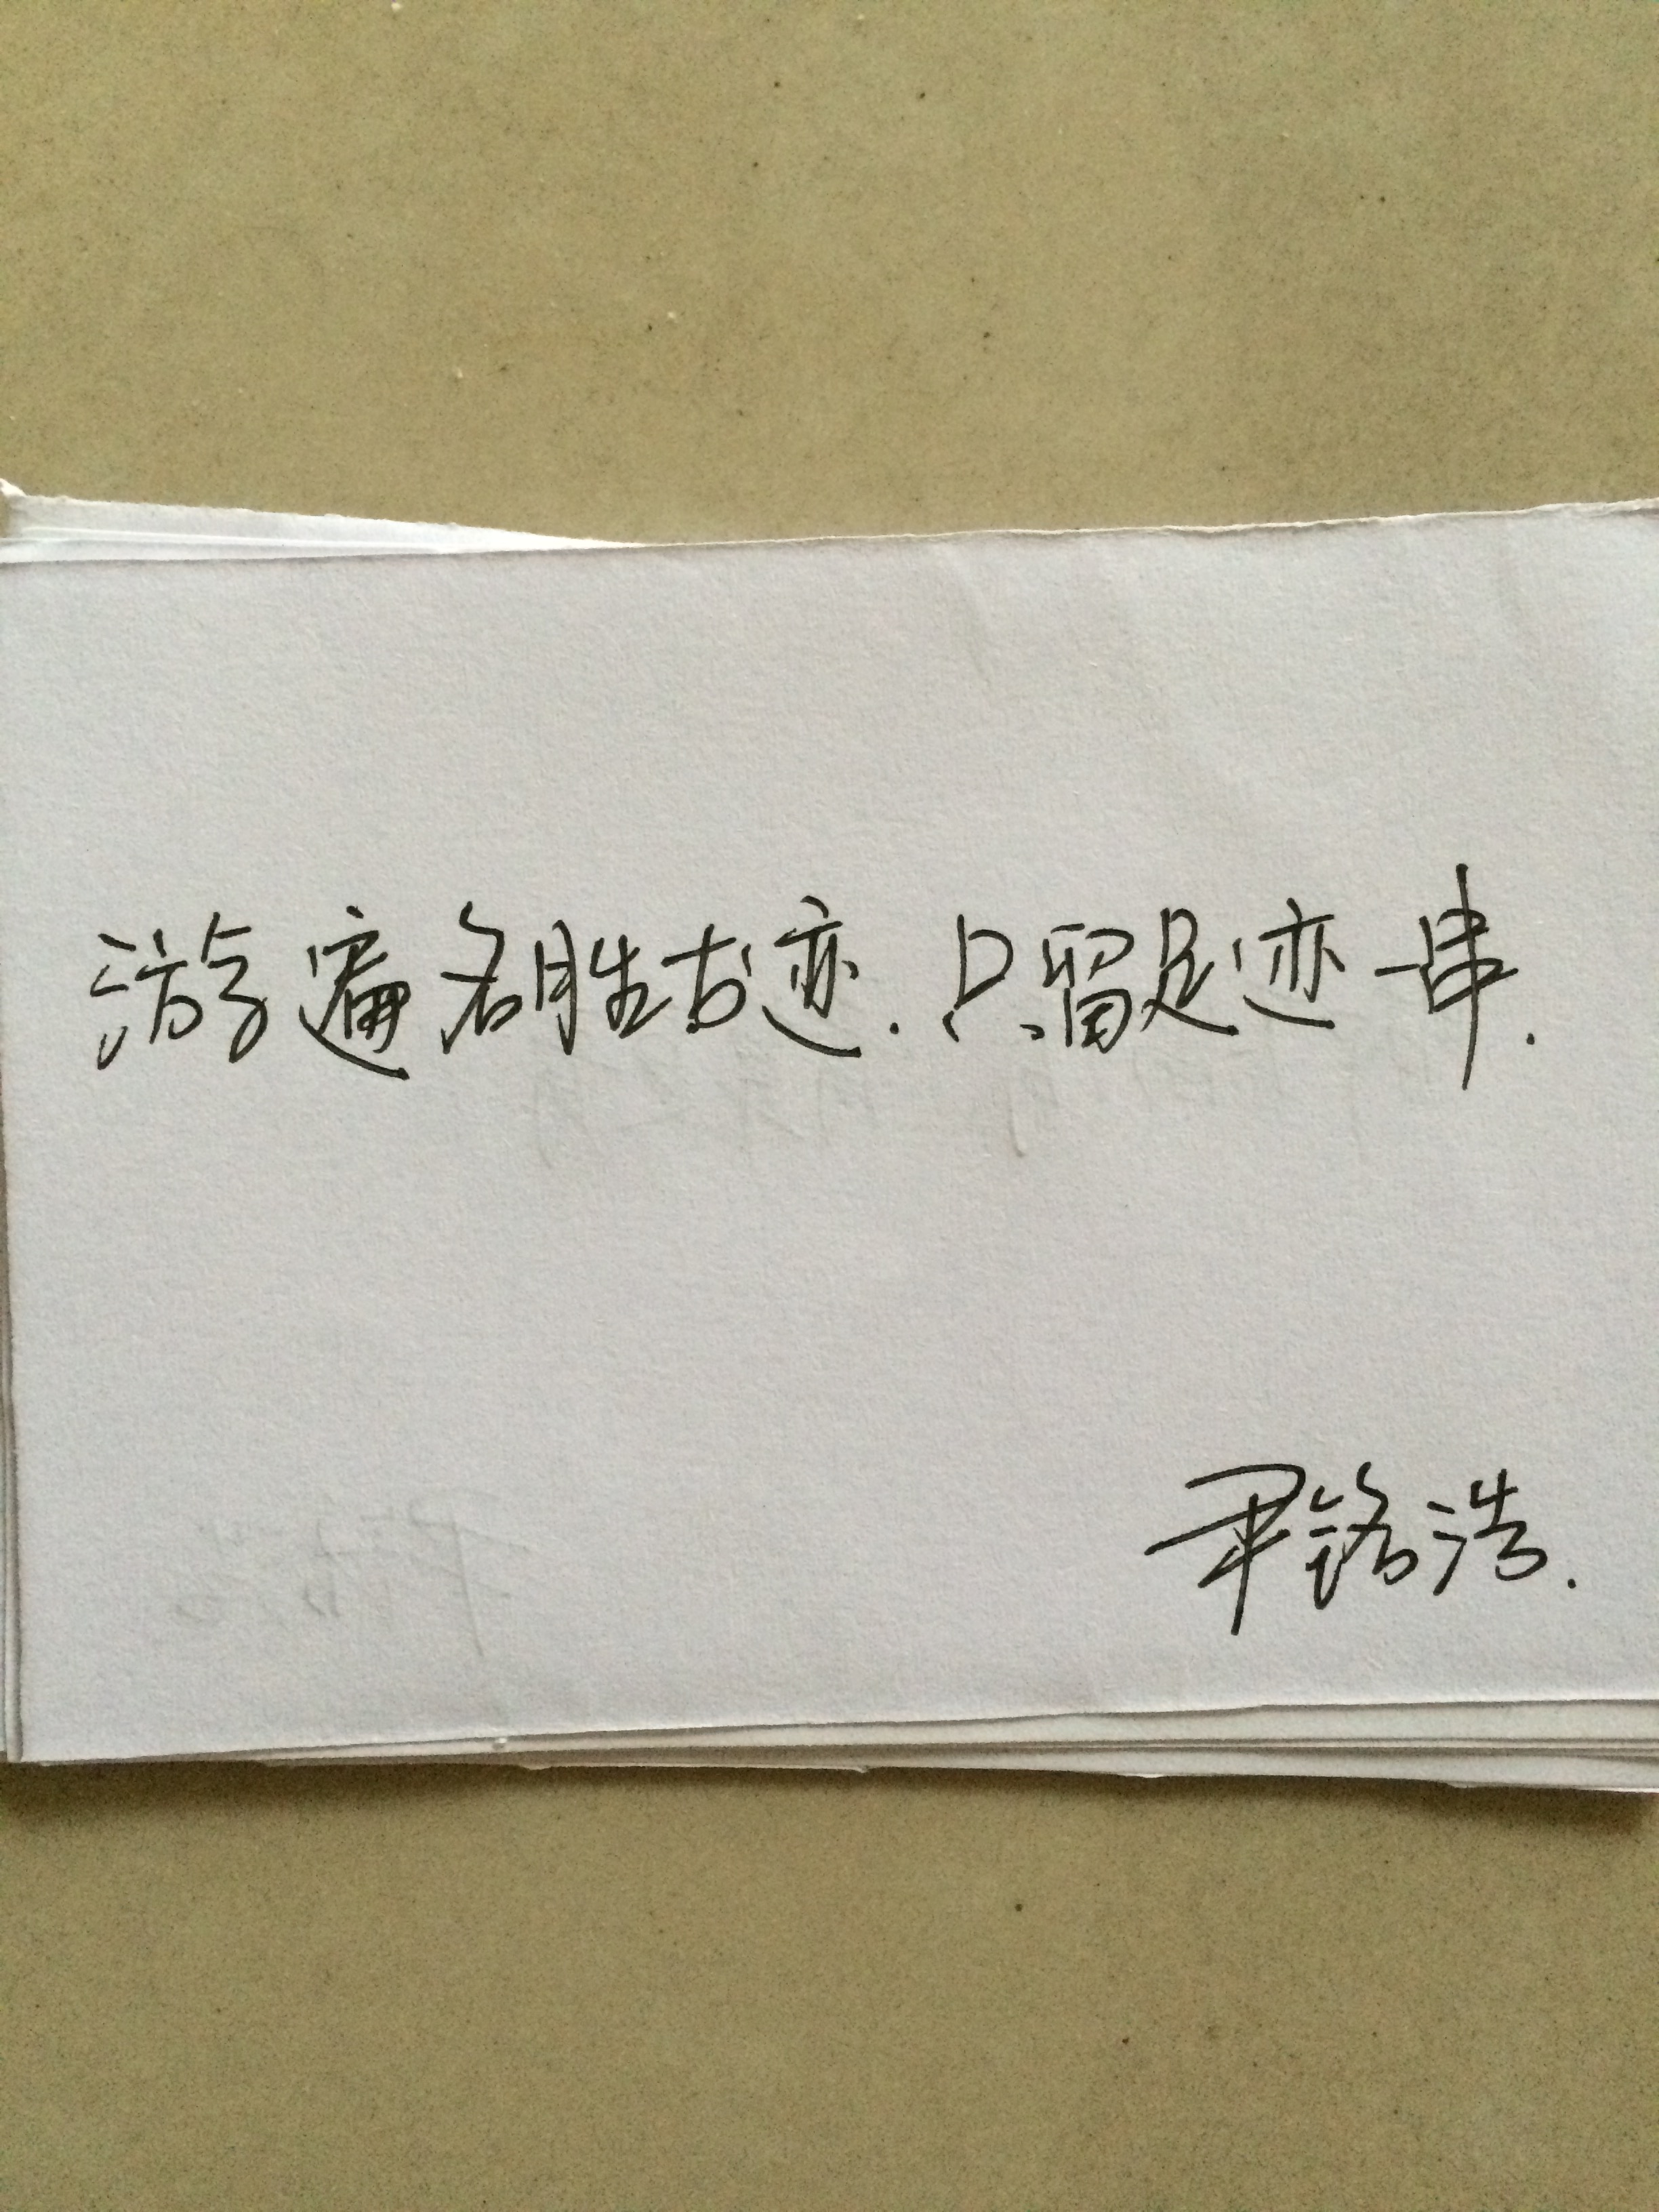 游遍名胜古迹.只留足迹一串.
尹铭浩.